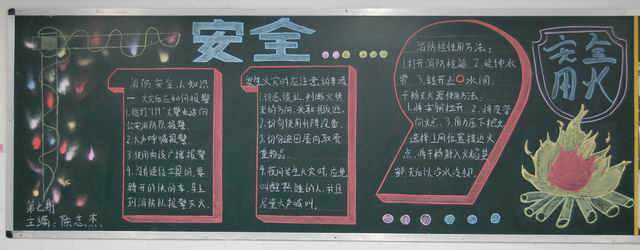 安全
消防安全小知识
一 火灾后应如何报警
1.拨打"119"火警电话向
公安消防队报警
2.大声呼喊报警
3.使用有线广播报警
4.没有通信工具的,要
骑开的快的车,马上
到消防队报警灭火。
发生火灾时应注意的事项
1.切忌慌乱,判断火势来
的方向,采取相应逃
2.切勿使用升降设备。
3.切勿返回屋内取贵
重物品。
4.夜间发生火灾时,应先
叫醒熟睡的人,并且
尽量大声喊叫。
消防栓使用方法:
1.打开消防栓箱 2.延伸水
带 3.转开止水阀
干粉灭火器使用方法:
1.将安销拉开 2.将皮管
向火点 3.用力压下把
选择上风位置接近火
点,将干粉射入火焰基
熄灭后以水冷却。
安全
用火
第七期
主编:陈志杰